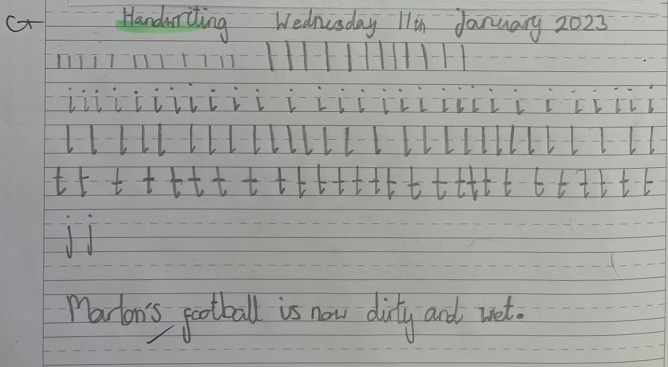 Handwriting Wednesday 11th January 2023
i i i i i i i i i i i i i i i i i i i i i i i i i i i i
l l l l l l l l l l l l l l l l l l l l l l l l l l l l
t t t t t t t t t t t t t t t t t t t t t t t t t t t t
j j
Marlon's football is now dirty and wet.